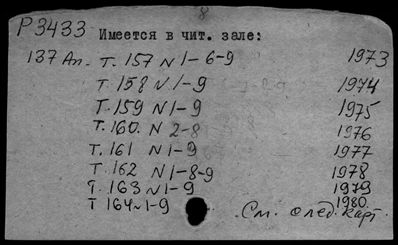 8
P3433 Имеется в чит. зале:
137 Ап. Т. 157 N 1-6-9 1973
Т. 158 N 1-9 1974
Т. 159 N 1-9 1975
Т. 160. N 2-8 1976
Т. 161 N 1-9 1977
Т. 162 N 1-8-9 1978
Т. 163 N 1-9 1979
Т 164 N 1-9 1980.
См. след. карт.